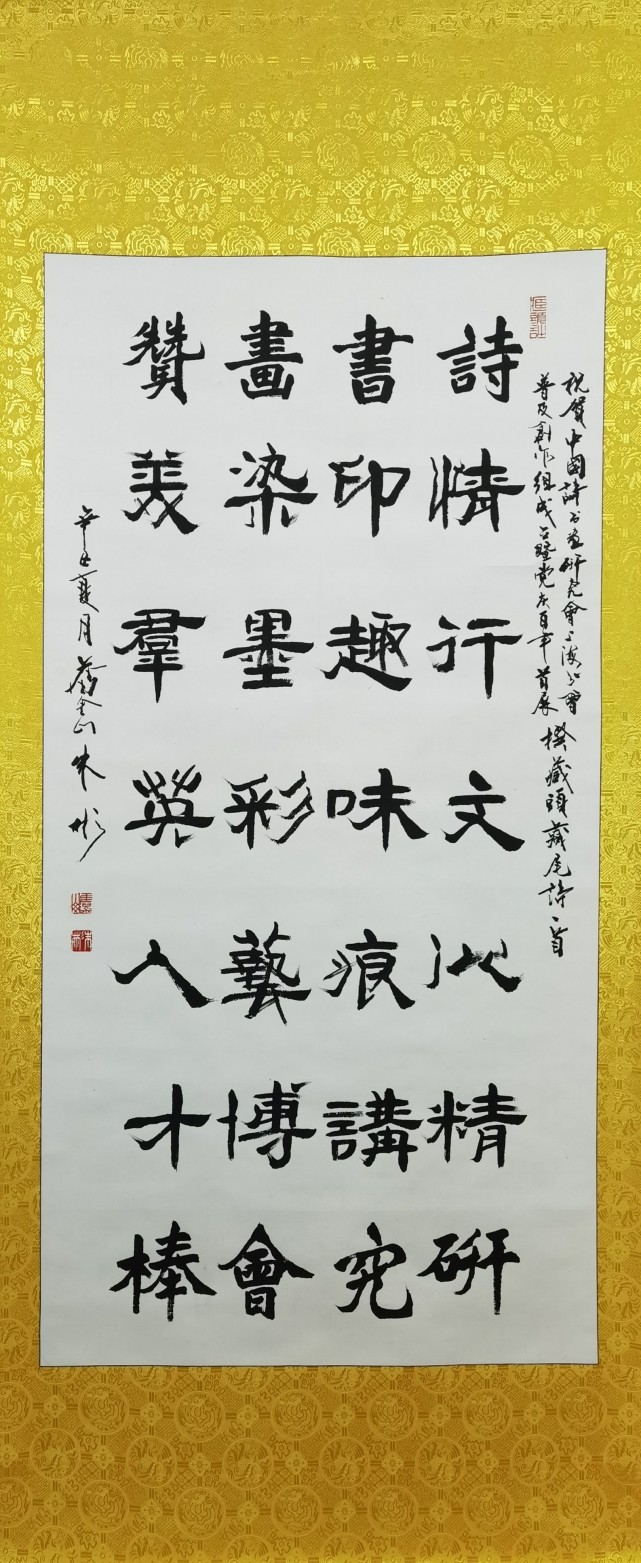 祝賀中國詩书画研究會上海分會
普及創作組成立暨党庆百年首展 撰藏頭藏尾詩一首
詩情行文沁精研
書印趣味痕講究
畫染墨彩藝博會
贊美羣英人才棒
辛丑夏月金山朱彬